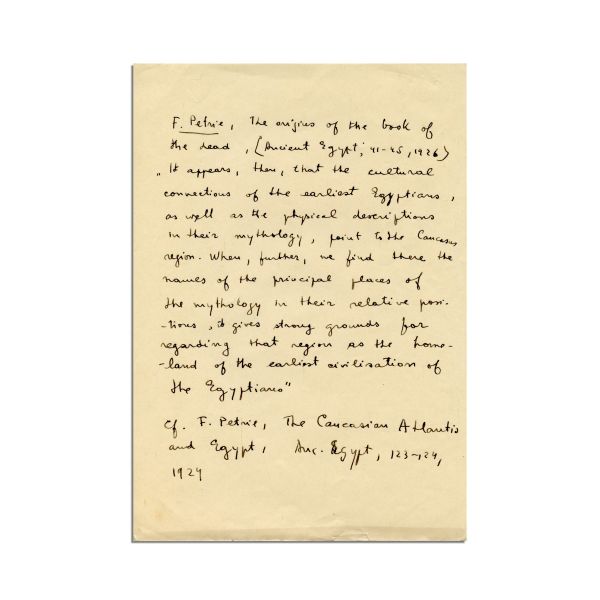 F. Petrie, The origins of the book of
the dead, (Ancient Egypt, 41-45, 1926)
„It appears, then, that the cultural
connections of the earliest Egyptians,
as well as the physical descriptions
in their mythology, point to the Caucasus
region. When, further, we find there the
names of the principal places of
the mythology in their relative posi-
-tions, it gives strong grounds for
regarding that region as the home-
-land of the earliest civilisation of
the Egyptians"
Cf. F. Petrie, The Caucasian Atlantis
and Egypt, Anc. Egypt, 123-124,
1924